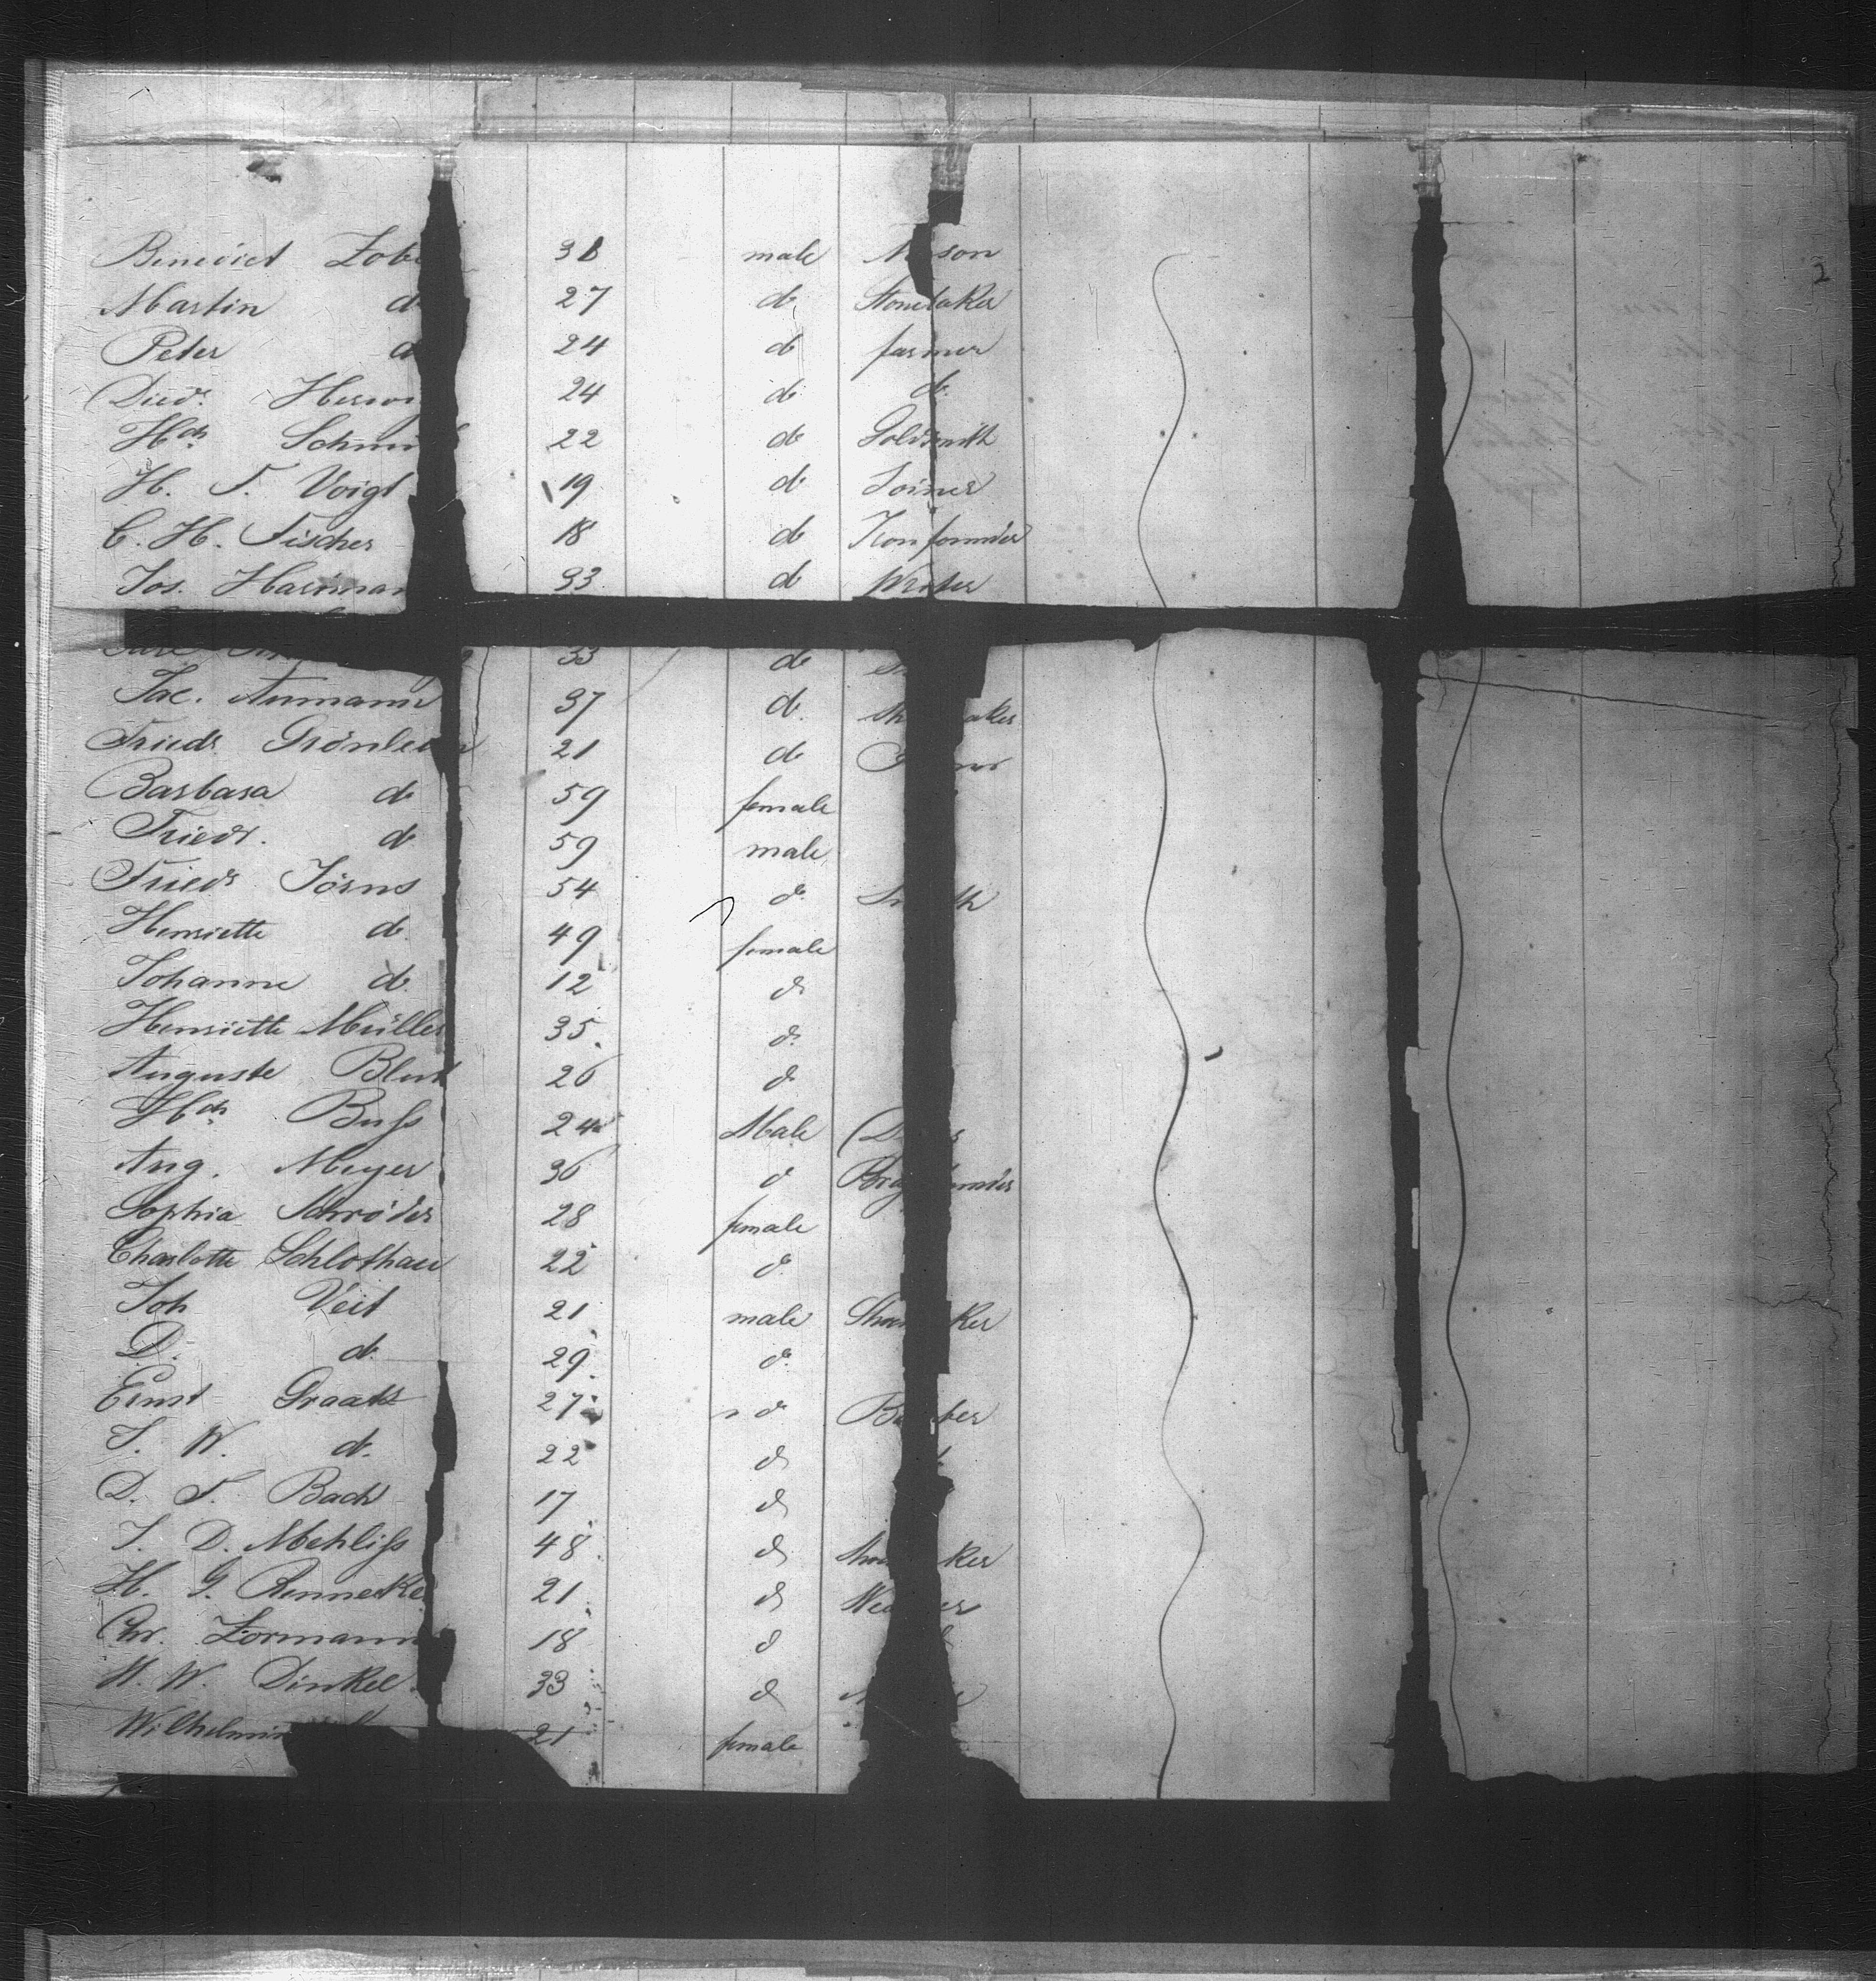 2
Benedict Zobe 31 male Mason
Martin do 27 do
Peter do 24 do farmer
Died. Herwi 24 do do
Hch Schmi 22 do Goldsmith
H. F. Voigt 19 do Joiner
C. H. Fischer 18 do Ironfounder
Jos. Hartman 33 do
33 do
Jac. Aumann 37 do Sh aker
Friedr. Grönlei 21 do
Barbara do 59 female
Friedr. do 59 male
Friedr Jörns 54 do Sm th
Henriette do 49 female
Johanne do 12 do
Henriette Müller 35 do
Auguste Blu 26 do
Hch Buss 24 Male
Aug. Meyer 36 do
Sophia Schröder 28 female
Charlotte Schlothau 22 do
Joh Veit 21 male Shoe ker
D. do 29 do
Ernst Graats 27 do Ba ber
J. W. do 22 do
D. F. Bach 17 do
J. D. Mehliss 48 do Shoe ker
H. G. Rennecke 21 do Wea er
Chr. Zormann 18 do
H. W. Dinkel 33 do
Wilhelmin 21 female